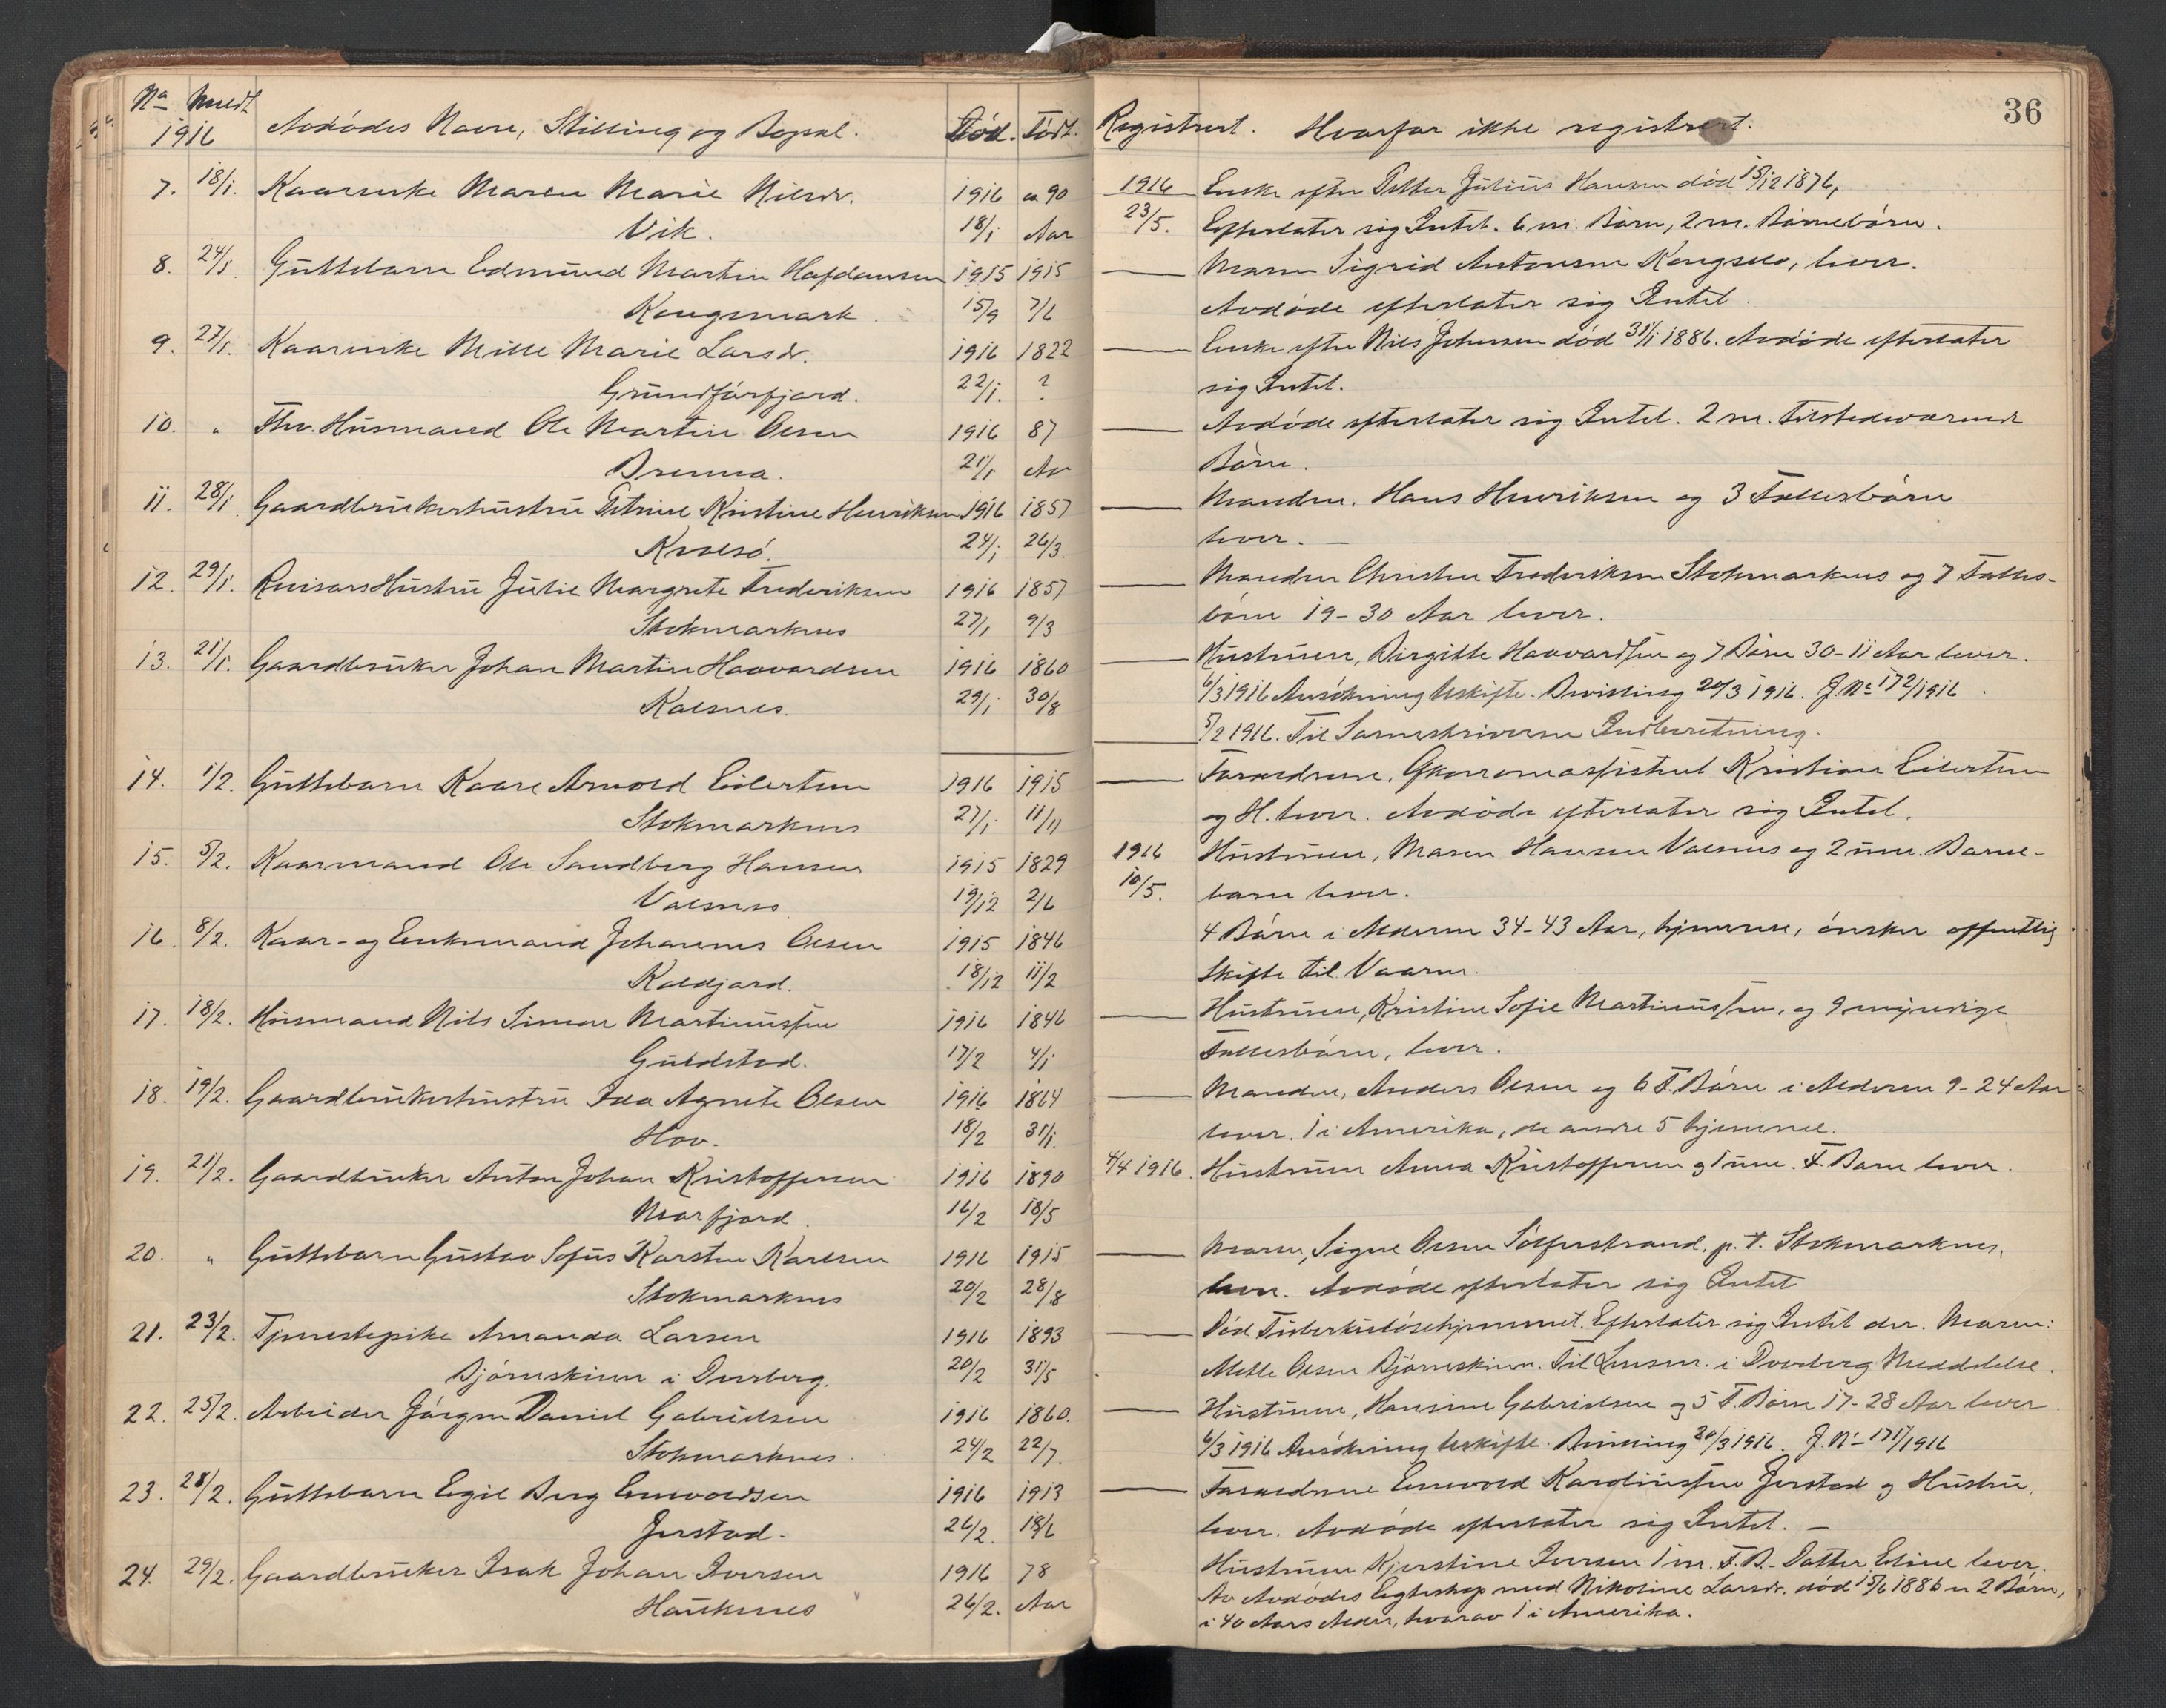 36
No Meldt 1916 Avdödes Navn, Stilling og Bopæl. Död. Födt. Registrert. Hvorfor ikke registrert.
7. 18/1. Kaarenke Maren Marie Nilsdr. 1916 ca 90 1916 Enke efter Petter Julius Hansen död 15/12 1876,
Vik. 18/1 Aar 23/5. Efterlater sig Intet. 6 m. Börn, 2 m. Barnebörn.
8. 24/1. Guttebarn Edmund Martin Hafdansen 1915 1915 — Moren Sigrid Antonsen Kongselv, lever.
Kongsmark. 15/9 7/6 Avdöde efterlater sig Intet.
9. 27/1. Kaarenke Mille Marie Larsdr. 1916 1822 — Enke efter Nils Johnsen död 31/1 1886. Avdöde efterlater
Grundförfjord. 22/1. ? sig Intet.
10. " Fhv. Husmand Ole Martin Olsen 1916 87 — Avdöde efterlater sig Intet. 2 m. tilstedeværende
Brenna. 21/1 Aar Börn.
11. 28/1 Gaardbrukerhustru Petrine Kristine Henriksen 1916 1857 — Manden, Hans Henriksen og 3 Fællesbörn
Kvalsö. 24/1 26/3. lever. —
12. 29/1. Hustru Julie Margrete Frederiksen 1916 1857 — Manden Christen Frederiksen Stokmarknes og 7 Fælles-
Stokmarknes 27/1 9/3 börn 19-30 Aar lever.
13. 21/1. Gaardbruker Johan Martin Haavardsen 1916 1860 — Hustruen, Birgitte Haavardsen og 7 Börn 30-11 Aar lever.
Kalsnes. 29/1 30/8 6/3 1916 Ansökning uskifte. Bevilling 20/3 1916. J. No 172/1916.
— 5/2 1916. Til Sorenskriveren Indberetning.
14. 1/2. Guttebarn Kaare Arnold Eilertsen 1916 1915 — Forældrene, Kristian Eilertsen
Stokmarknes 27/1 11/11 og H. lever. Avdöde efterlater sig Intet.
15. 5/2. Kaarmand Ole Sandberg Hansen 1915 1829 1916 Hustruen, Maren Hansen Valsnes og 2 um. Barne-
Valsnes 19/12 2/6 10/5. barn lever.
16. 8/2. Kaar- og Enkemand Johannes Olsen 1915 1846 4 Börn i Alderen 34-43 Aar, hjemme, önsker offentlig
Koldjord. 18/12 11/2 Skifte til Vaaren.
17. 18/2. Husmand Nils Simon Martinussen 1916 1846 — Hustruen, Kristine Sofie Martinussen, og 9 myndige
Guldstad. 17/2 4/1 Fællesbörn, lever.
18. 19/2. Gaardbrukerhustru Ida Agnete Olsen 1916 1864 — Manden, Anders Olsen og 6 F. Börn i Alderen 9-24 Aar
Hov. 18/2 31/1. lever. 1 i Amerika, de andre 5 hjemme.
19. 21/2. Gaardbruker Anton Johan Kristoffersen 1916 1890 4/4 1916. Hustruen Anna Kristoffersen og 1 um. F. Barn lever.
Morfjord. 16/2 18/5
20. " Guttebarn Gustav Sofus Karsten Karlsen 1916 1915 — Moren, Signe Olsen Sölferstrand. p. t. Stokmarknes,
Stokmarknes 20/2 28/8 lever. Avdöde efterlater sig Intet
21. 23/2. Tjenestepike Amanda Larsen 1916 1893 — Död Tuberkulösehjemmet. Efterlater sig Intet der. Moren:
Björneskinn i Dverberg. 20/2 31/5 Mette Olsen Björneskinn. Til Lensm. i Dverberg Meddelelse.
22. 25/2. Arbeider Jörgen Daniel Gabrielsen 1916 1860. — Hustruen, Hansine Gabrielsen og 5 F. Börn 17-28 Aar lever.
Stokmarknes. 24/2 22/7. 6/3 1916 Ansökning uskifte. Bevilling 20/3 1916. J. No 171/1916
23. 28/2. Guttebarn Egil Berg Enevoldsen 1916 1913 — Forældrene Enevold Karoliussen Jerstad og Hustru,
Jerstad. 26/2. 18/6 lever. Avdöde efterlater sig Intet. —
24. 29/2. Gaardbruker Isak Johan Iversen 1916 78 Hustruen Kjerstine Iversen 1 m. F. B. Datter Eline lever.
Hauknes 26/2. Aar Av Avdödes Egteskap med Nikoline Larsdr. död 15/6 1886 er 2 Börn,
i 40 Aars Alder, hvorav 1 i Amerika.